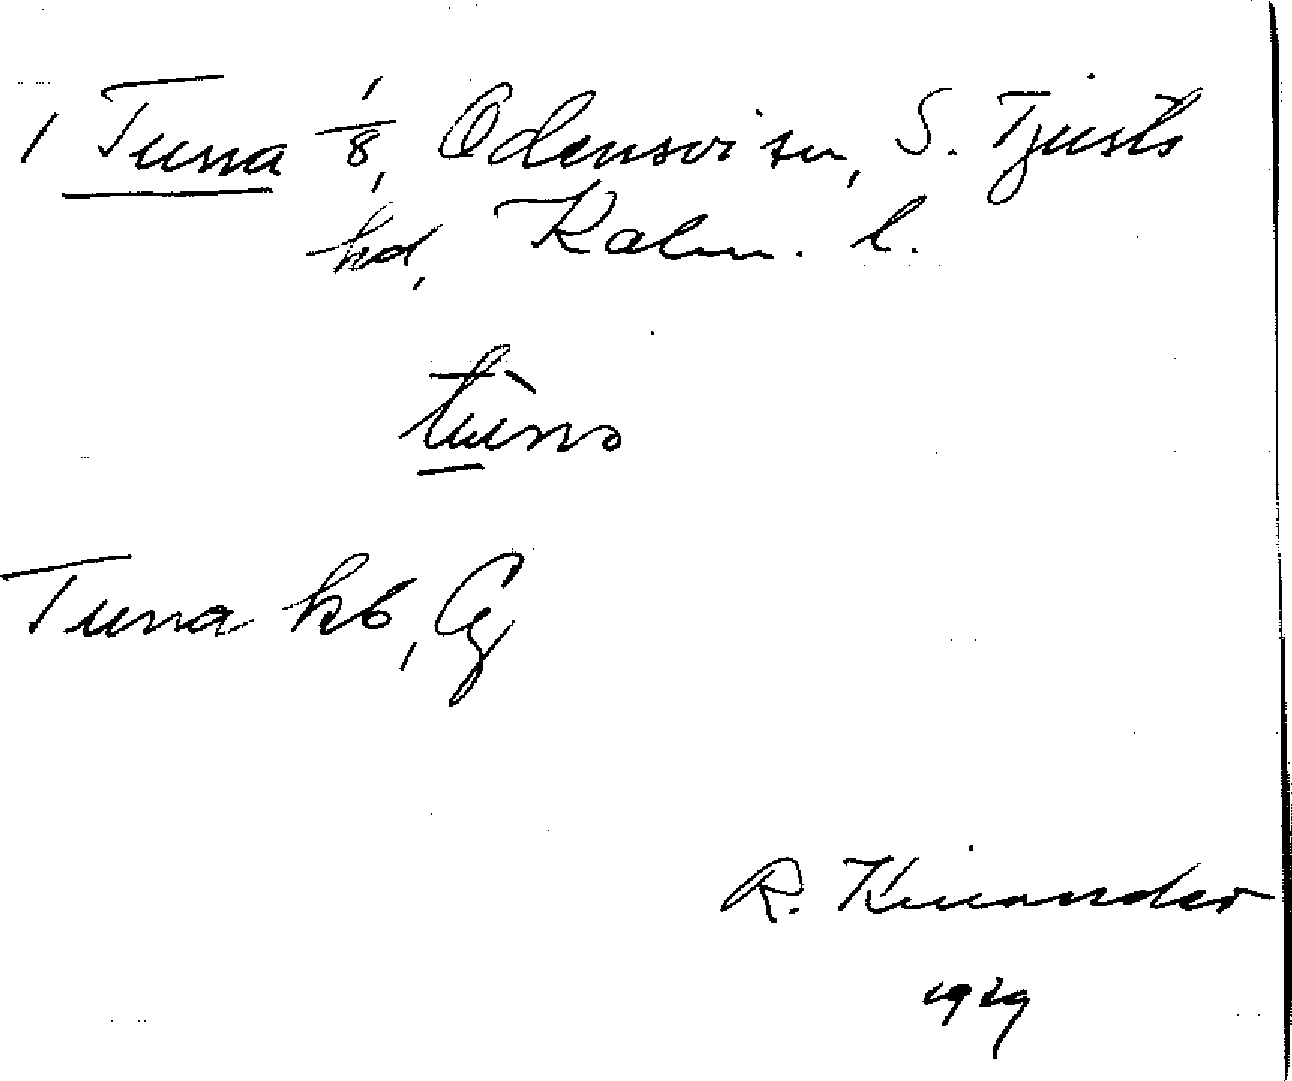 1 Tuna 1/8, Odensvi sn, S. Tjusts
hd, Kalm. l.
Tuna kb,
R. Kinander
1929